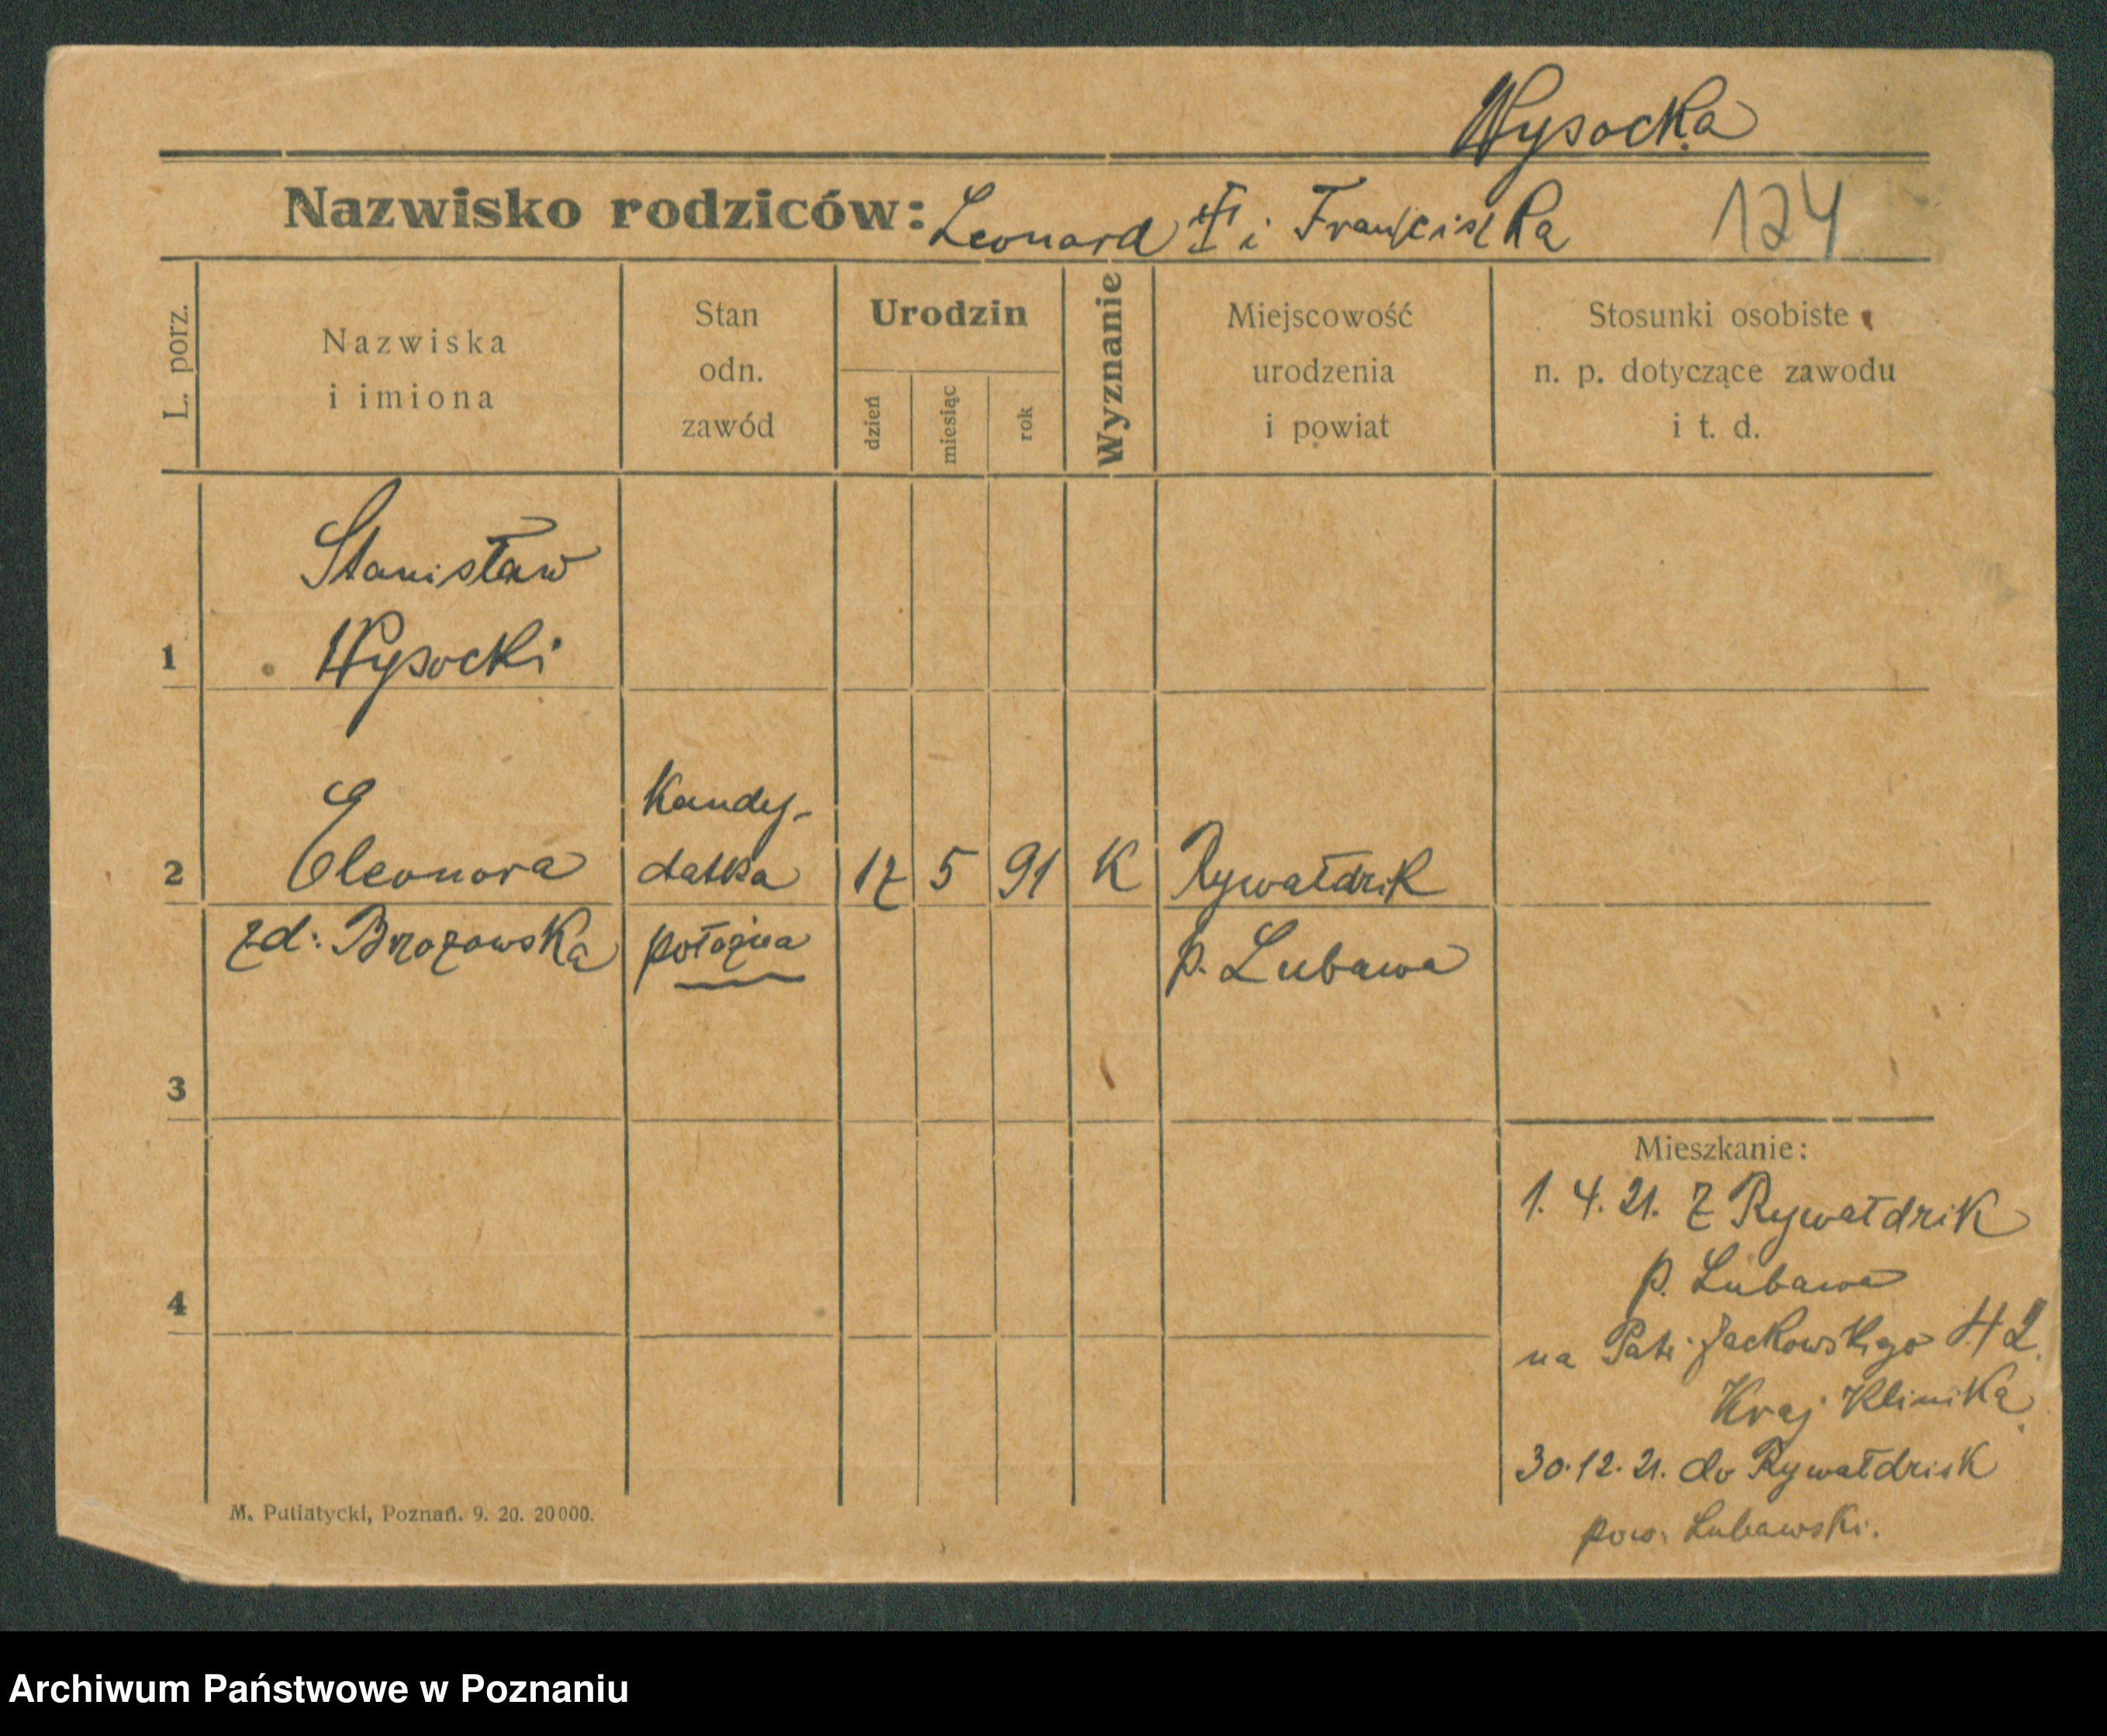 Wysocka
Nazwisko rodziców: Leonard i Franciszka 124
L. porz.
Nazwiska
i imiona
Stan
odn.
zawód
Urodzin
dzień
miesiąc
rok
Wyznanie
Miejscowość
urodzenia
i powiat
Stosunki osobiste
n. p. dotyczące zawodu
i t. d.
Stanisław
1 Wysocki
Kandy-
2 Eleonora datka 17 5 91 K Rywałdzik
zd: Brzozowska położna p. Lubawa
3
Mieszkanie:
1. 4. 21. Z Rywałdzik
p. Lubawa
4
na Patr. Jackowskiego 42.
Kraj Klinika
30.12.21. do Rywałdzik
pow. Lubawski.
M. Putiatycki, Poznań. 9. 20. 20000.
Archiwum Państwowe w Poznaniu